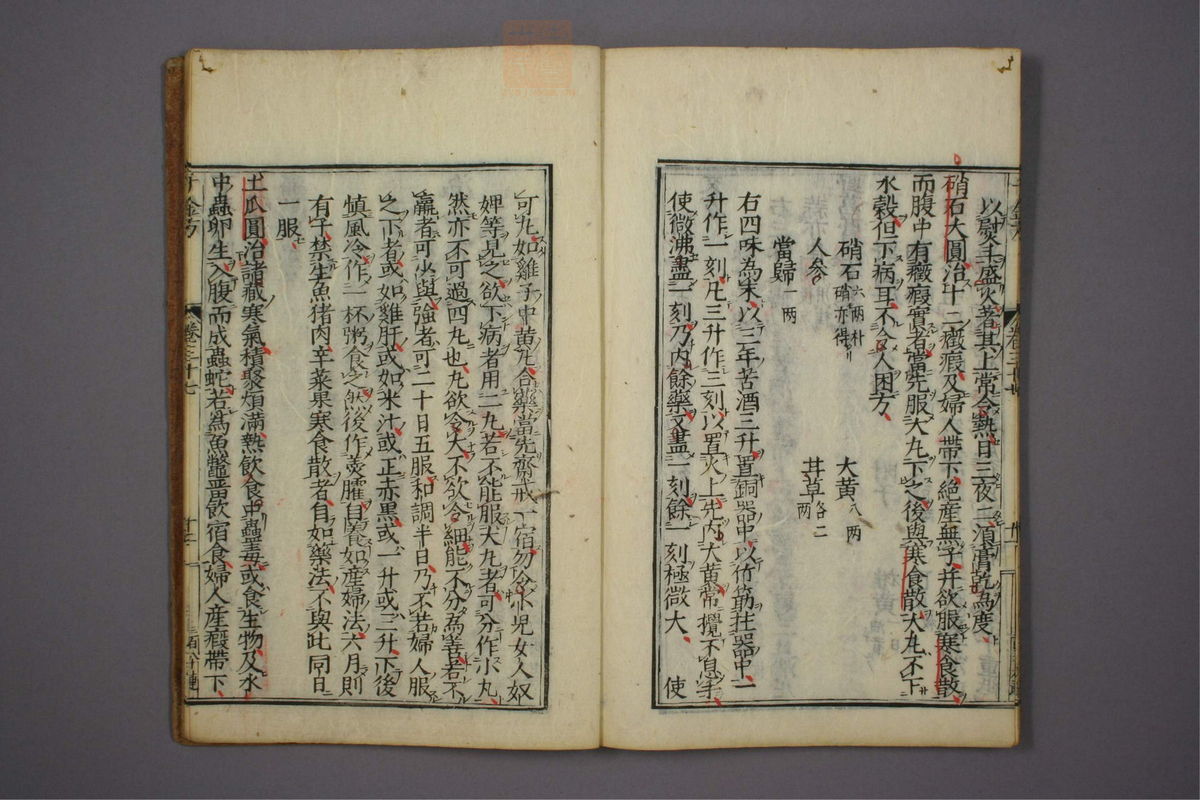 以熨斗盛火著其上常令熱日三夜二須膏乾為度
硝石大圓治十二癥瘕及婦人帶下絕産無子并欲服寒食散
而腹中有癥瘕實者當先服大丸下之後與寒食散大丸不下
水穀但下病耳不令人困方
硝石六兩朴硝亦得 大黃八兩
人參 甘草各二兩
當歸一兩
右四味為末以三年苦酒三升置銅器中以竹筯拄器中一
升作一刻凡三升作三刻以置火上先内大黃常攪不息手
使微沸盡一刻乃内餘藥又盡一刻餘一刻極微大 使
可丸如雞子中黃凡合藥當先齋戒一宿勿令小兒女人奴
婢等見之欲下病者用二丸若不能服大丸者可分作小丸
然亦不可過四丸也丸欲令大不欲令細能不分為善若不
羸者可少與強者可二十日五服和調半日乃不若婦人服
之下者或如雞肝或如米汁或正赤黑或一升或三升下後
慎風冷作一杯粥食之然後作羹臛自養如産婦法六月則
有子禁生魚猪肉辛菜果寒食散者自如藥法不與此同日
一服
土瓜圓治諸藏寒氣積聚煩滿熱飲食中蟲毒或食生物及水
中蟲卵生入腹而成蟲蛇若為魚鼈留飲宿食婦人産瘕帶下
千金方 卷三十七 十二